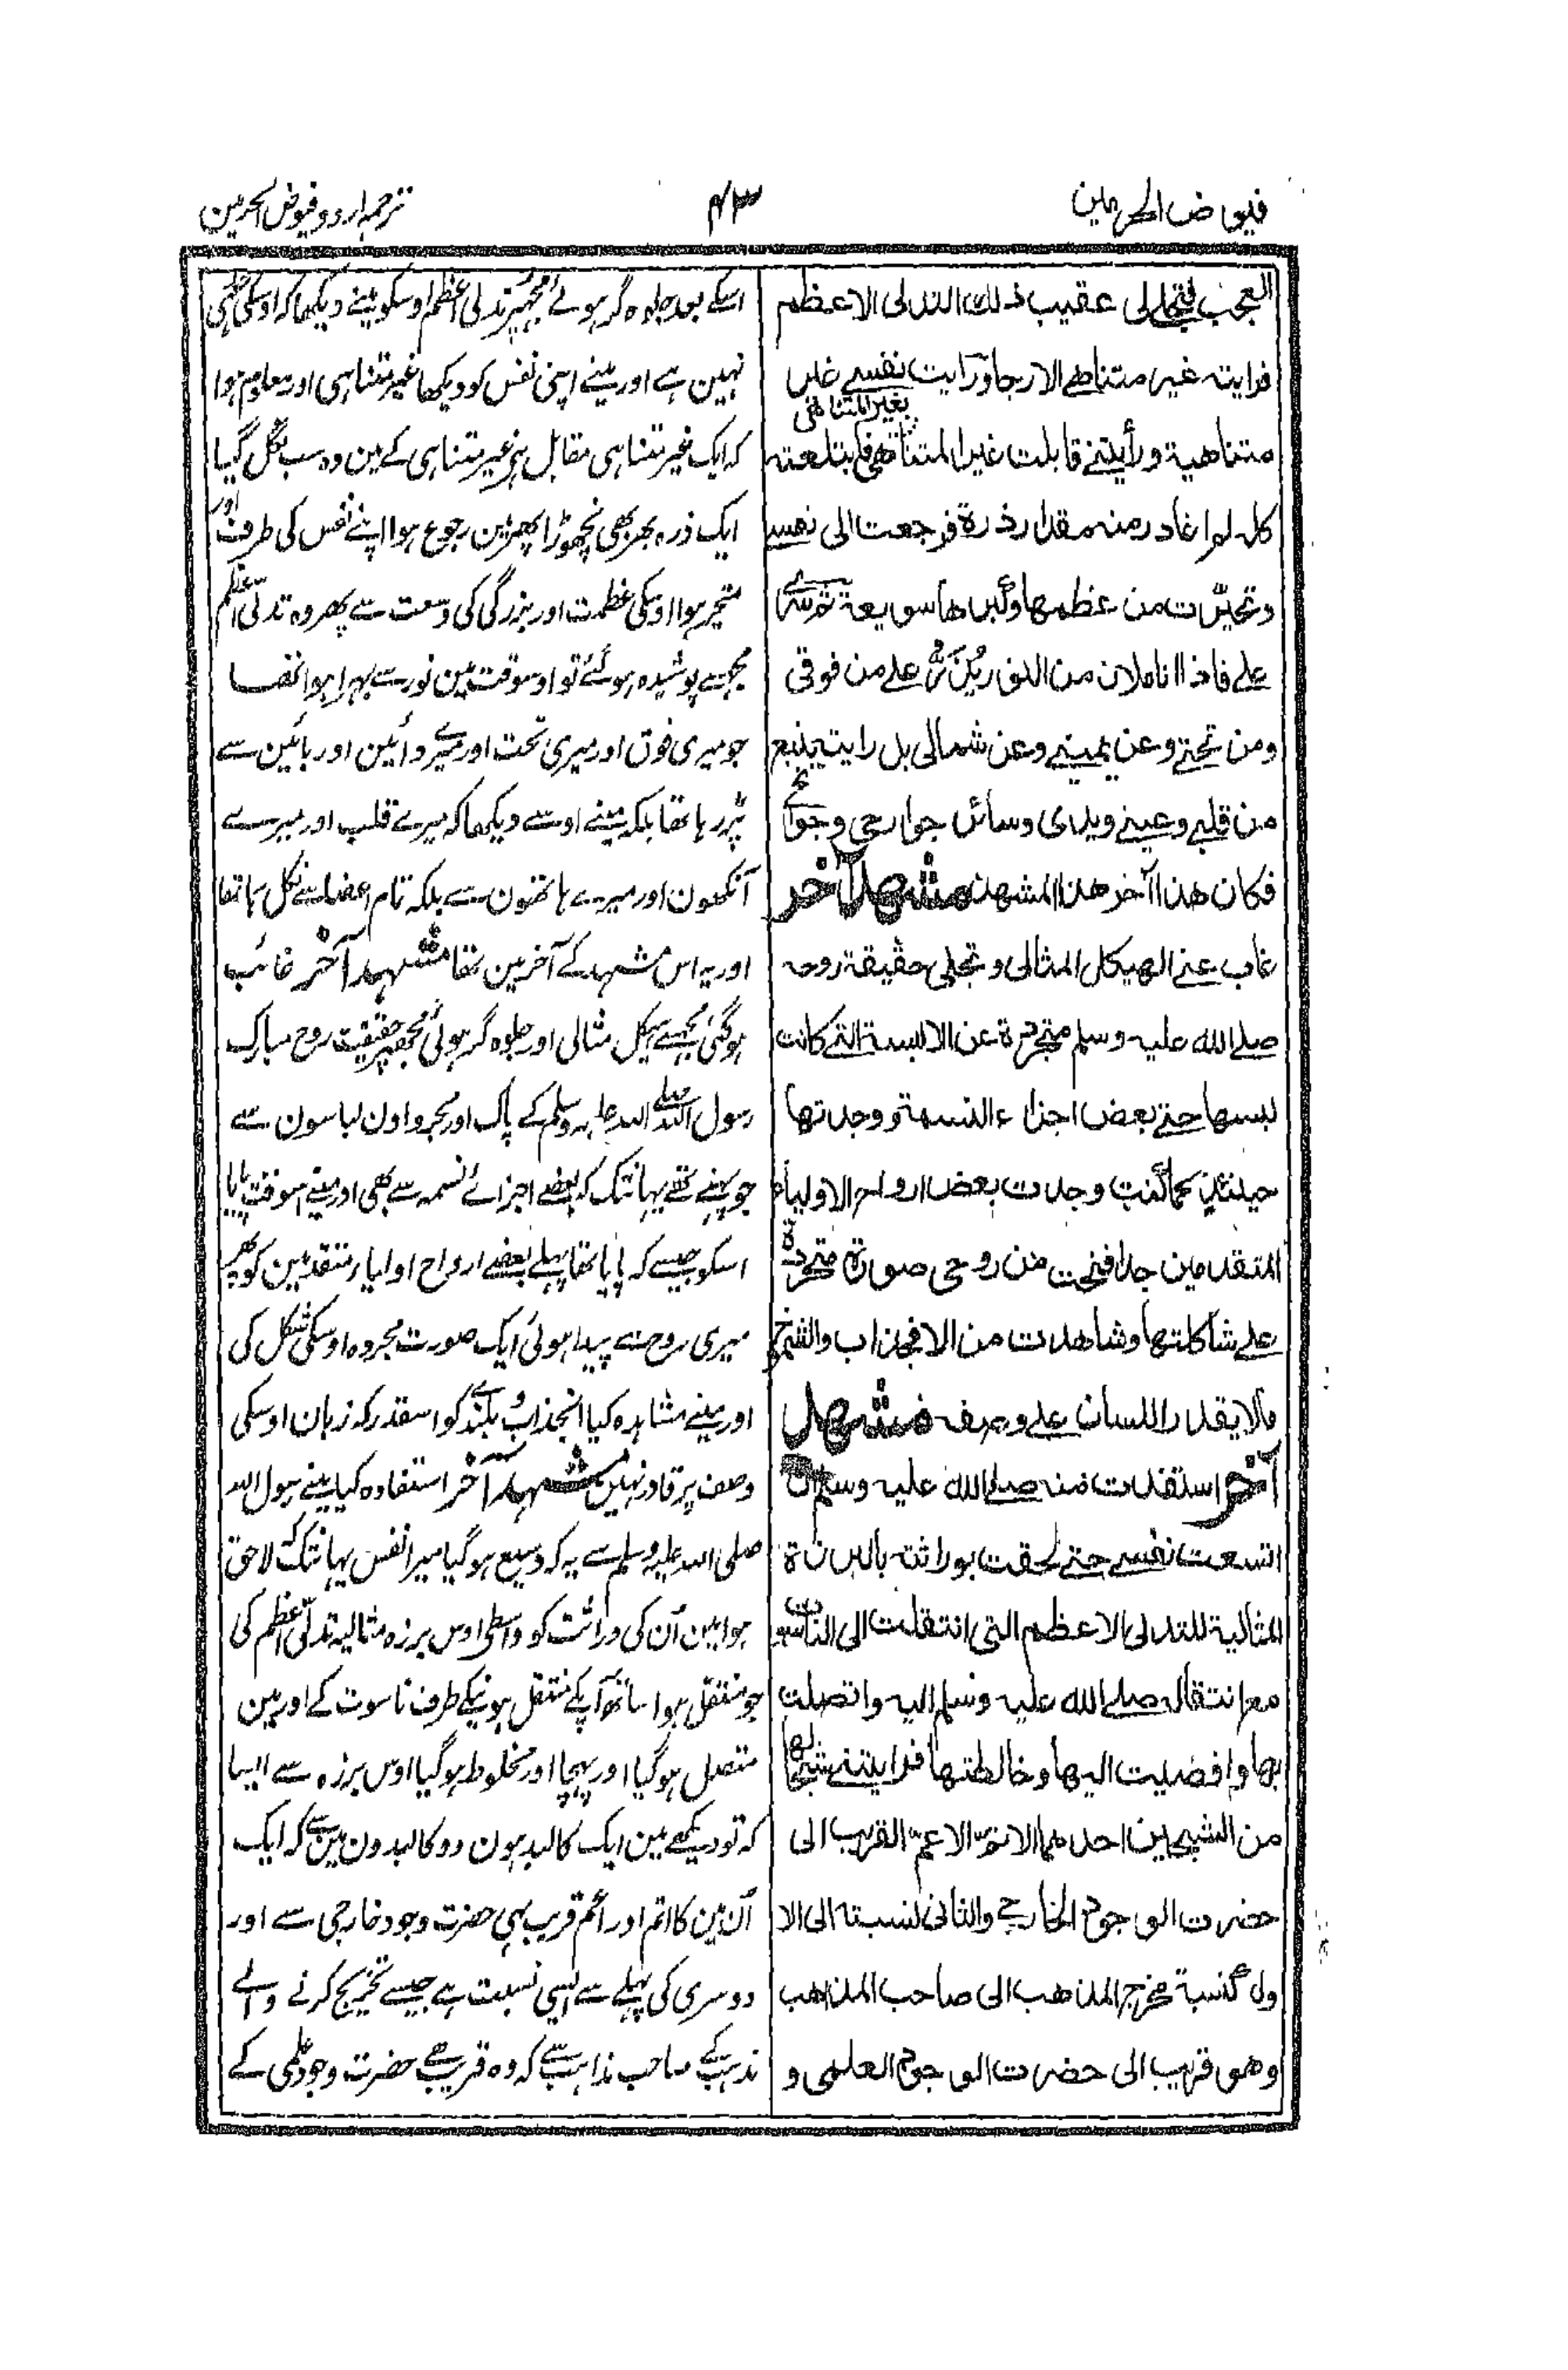 فیوض الحرمین
۴۳
ترجمہ اردو فیوض الحرمین
العجب فتجلی لی عقیب ذلك التدلی الاعظم
فرایتہ غیر متناهی الارجا ورایت نفسی غیر
متناهیة ورأیتنی قابلت غیر المتناهی بغیر المتناهی فابتلعتہ
کلہ لم اغادر منہ مقدار ذرة فرجعت الی نفسی
وتحیّرت من عظمها وکبرها سویعة ثم سری
علی فاذا انا ملان من النور یُنزَّل علی من فوقی
ومن تحتی وعن یمینی وعن شمالی بل رایت ینبع
من قلبی وعینی ویدی وسائر جوارحی وجوانحی
فکان هذا آخر هذا المشهد مشهد آخر
غاب عنی الهیکل المثالی وتجلی حقیقة روحہ
صلے الله علیہ وسلم متجردة عن الالبسة التی کانت
لبسها حتی بعض اجزاء النسمة ووجدتها
حینئذ کما کنت وجدت بعض ارواح الاولیاء
المتقدمین جدا فنجت من روحی صورة متجردة
علی شاکلتها وشاهدت من الانجذاب والشموخ
مالا یقدر اللسان علی وصفہ مشهد
آخر استفدت منہ صلے الله علیہ وسلم ان
اتسعت نفسی حتی لحقت بوراثتہ بالبرزة
المثالیة للتدلی الاعظم التی انتقلت الی الناسوت
مع انتقالہ صلے الله علیہ وسلم الیہ واتصلت
بها وافضیت الیها وخالطتها فرایتنی شبحا لها
من الشبحین احدهما الاتمّ الاعمّ القریب الی
حضرت الوجود الخارجی والثانی نسبتہ الی الا
ول کنسبة مخرج المذهب الی صاحب المذهب
وهو قریب الی حضرت الوجود العلمی و
اسکے بعد جلوہ گر ہوئے مجھپر تدلی اعظم اوسکو مینے دیکھا کہ اوسکی حد ہی
نہین ہے اور مینے اپنی نفس کو دیکھا غیر متناہی اور معلوم ہوا
کہ ایک غیر متناہی مقابل ہی غیر متناہی کے مین وہ سب نگل گیا
ایک ذرہ بھر بھی نچھوڑا پھر مین رجوع ہوا اپنے نفس کی طرف اور
متحیر ہوا اوسکی عظمت اور بزرگی کی وسعت سے پھر وہ تدلی اعظم
مجھسے پوشیدہ ہو گئے تو اوسوقت مین نور سے بہرا ہوا تھا
جو میری فوق اور میری تحت اور میرے دائین اور بائین سے
پڑ رہا تھا بلکہ مینے اوسے دیکھا کہ میرے قلب اور میرے
آنکھون اور میرے ہاتھون سے بلکہ تمام اعضا سے نکل رہا تھا
اور یہ اس مشہد کے آخر مین تھا مشہد آخر غائب
ہو گئی مجھسے ہیکل مثالی اور جلوہ گر ہوئی مجھپر حقیقت روح مبارک
رسول اللہ صلے اللہ علیہ وسلم کے پاک اور مجرد اون لباسون سے
جو پہنے تھے یہانتک کہ بعضے اجزائے نسمہ سے بھی اور مینے اسوقت پایا
اسکو جیسے کہ پایا تھا پہلے بعضے ارواح اولیاء متقدمین کو پھر
میری روح سے پیدا ہوئی ایک صورت مجردہ اوسکی شکل کی
اور مینے مشاہدہ کیا انجذاب و بلندی کو اسقدر کہ زبان اوسکی
وصف پر قادر نہین مشہد آخر استفادہ کیا مینے رسول اللہ
صلی اللہ علیہ وسلم سے یہ کہ وسیع ہو گیا میرا نفس یہانتک کہ لاحق
ہوا مین اُن کی وراثت کو واسطے اوس برزہ مثالیہ تدلی اعظم کی
جو منتقل ہوا ساتھ آپکے منتقل ہونیکے طرف ناسوت کے اور مین
متصل ہو گیا اور پہنچا اور مخلوط ہو گیا اوس برزہ سے ایسا
کہ تو دیکھے مین ایک کالبد ہون دو کالبدون مین سے کہ ایک
اُن مین کا اتم اور اعم قریب ہی حضرت وجود خارجی سے اور
دوسری کی پہلے سے ایسی نسبت ہے جیسے تخریج کرنے والے
مذہب کے صاحب مذہب سے کہ وہ قریب ہے حضرت وجود علمی کے